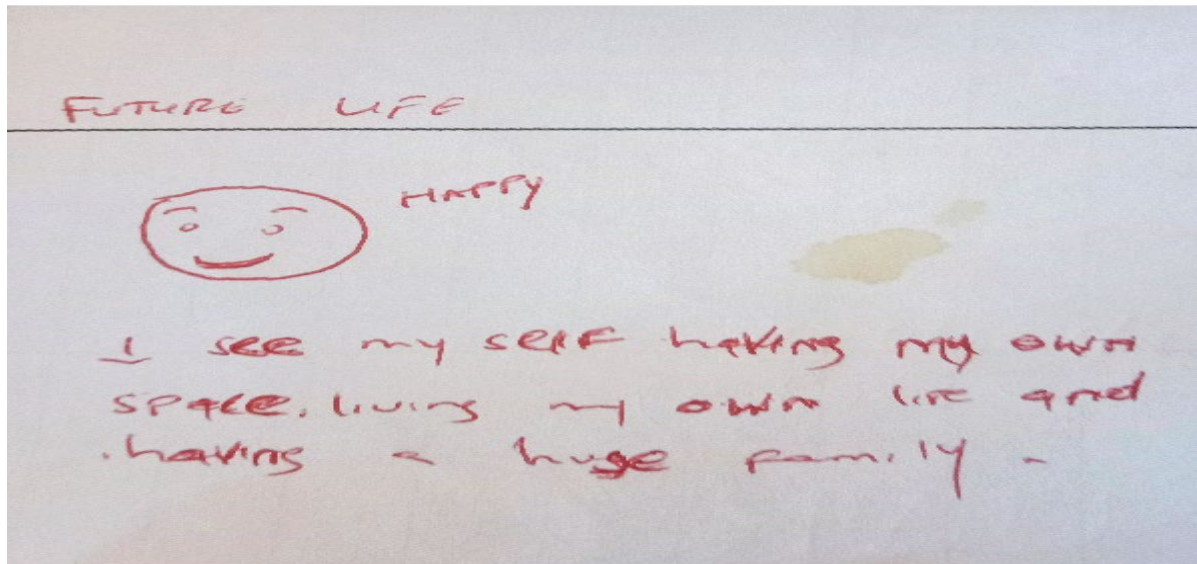 FUTURE LIFE
HAPPY
I see my self having my own
space. living my own life and
having a huge family.